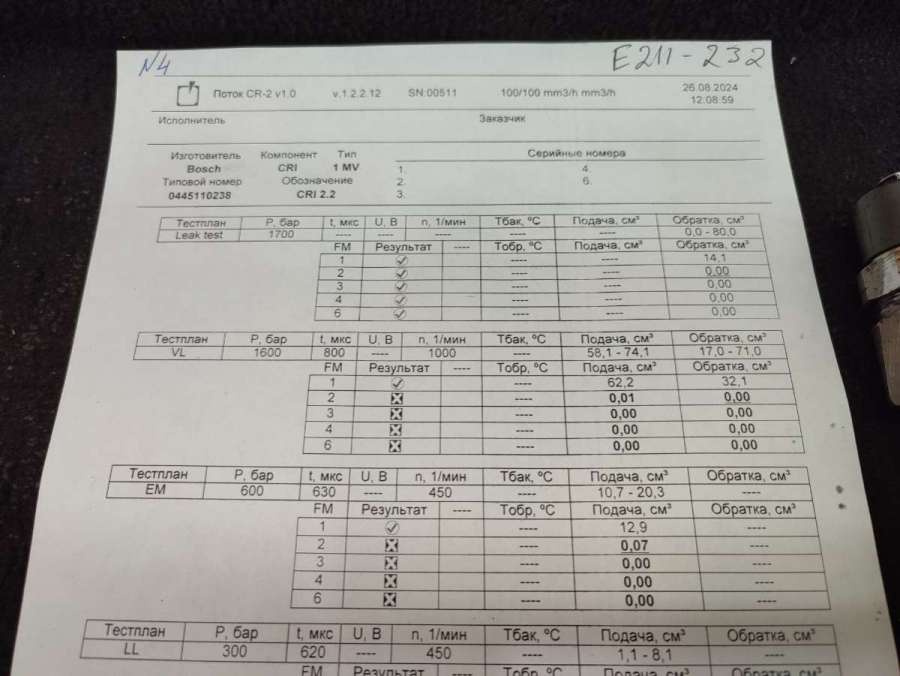 N4 E211-232
Поток CR-2 v1.0 v.1.2.2.12 SN:00511 100/100 mm3/h mm3/h 26.08.2024
12:08:59
Исполнитель Заказчик
Изготовитель Компонент Тип Серийные номера
Bosch CRI 1 MV 1. 4.
Типовой номер Обозначение 2. 6.
0445110238 CRI 2.2 3.
Тестплан P, бар t, мкс U, В n, 1/мин Tбак, ºC Подача, см³ Обратка, см³
Leak test 1700 ---- ---- ---- ---- ---- 0,0 - 80,0
FM Результат ---- Тобр, ºC Подача, см³ Обратка, см³
1 ---- ---- 14,1
2 ---- ---- 0,00
3 ---- ---- 0,00
4 ---- ---- 0,00
6 ---- ---- 0,00
Тестплан P, бар t, мкс U, В n, 1/мин Tбак, ºC Подача, см³ Обратка, см³
VL 1600 800 ---- 1000 ---- 58,1 - 74,1 17,0 - 71,0
FM Результат ---- Тобр, ºC Подача, см³ Обратка, см³
1 ---- 62,2 32,1
2 ---- 0,01 0,00
3 ---- 0,00 0,00
4 ---- 0,00 0,00
6 ---- 0,00 0,00
Тестплан P, бар t, мкс U, В n, 1/мин Tбак, ºC Подача, см³ Обратка, см³
EM 600 630 ---- 450 ---- 10,7 - 20,3 ----
FM Результат ---- Тобр, ºC Подача, см³ Обратка, см³
1 ---- 12,9 ----
2 ---- 0,07 ----
3 ---- 0,00 ----
4 ---- 0,00 ----
6 ---- 0,00 ----
Тестплан P, бар t, мкс U, В n, 1/мин Tбак, ºC Подача, см³ Обратка, см³
LL 300 620 ---- 450 ---- 1,1 - 8,1 ----
FM Результат ---- Тобр, ºC Подача, см³ Обратка, см³